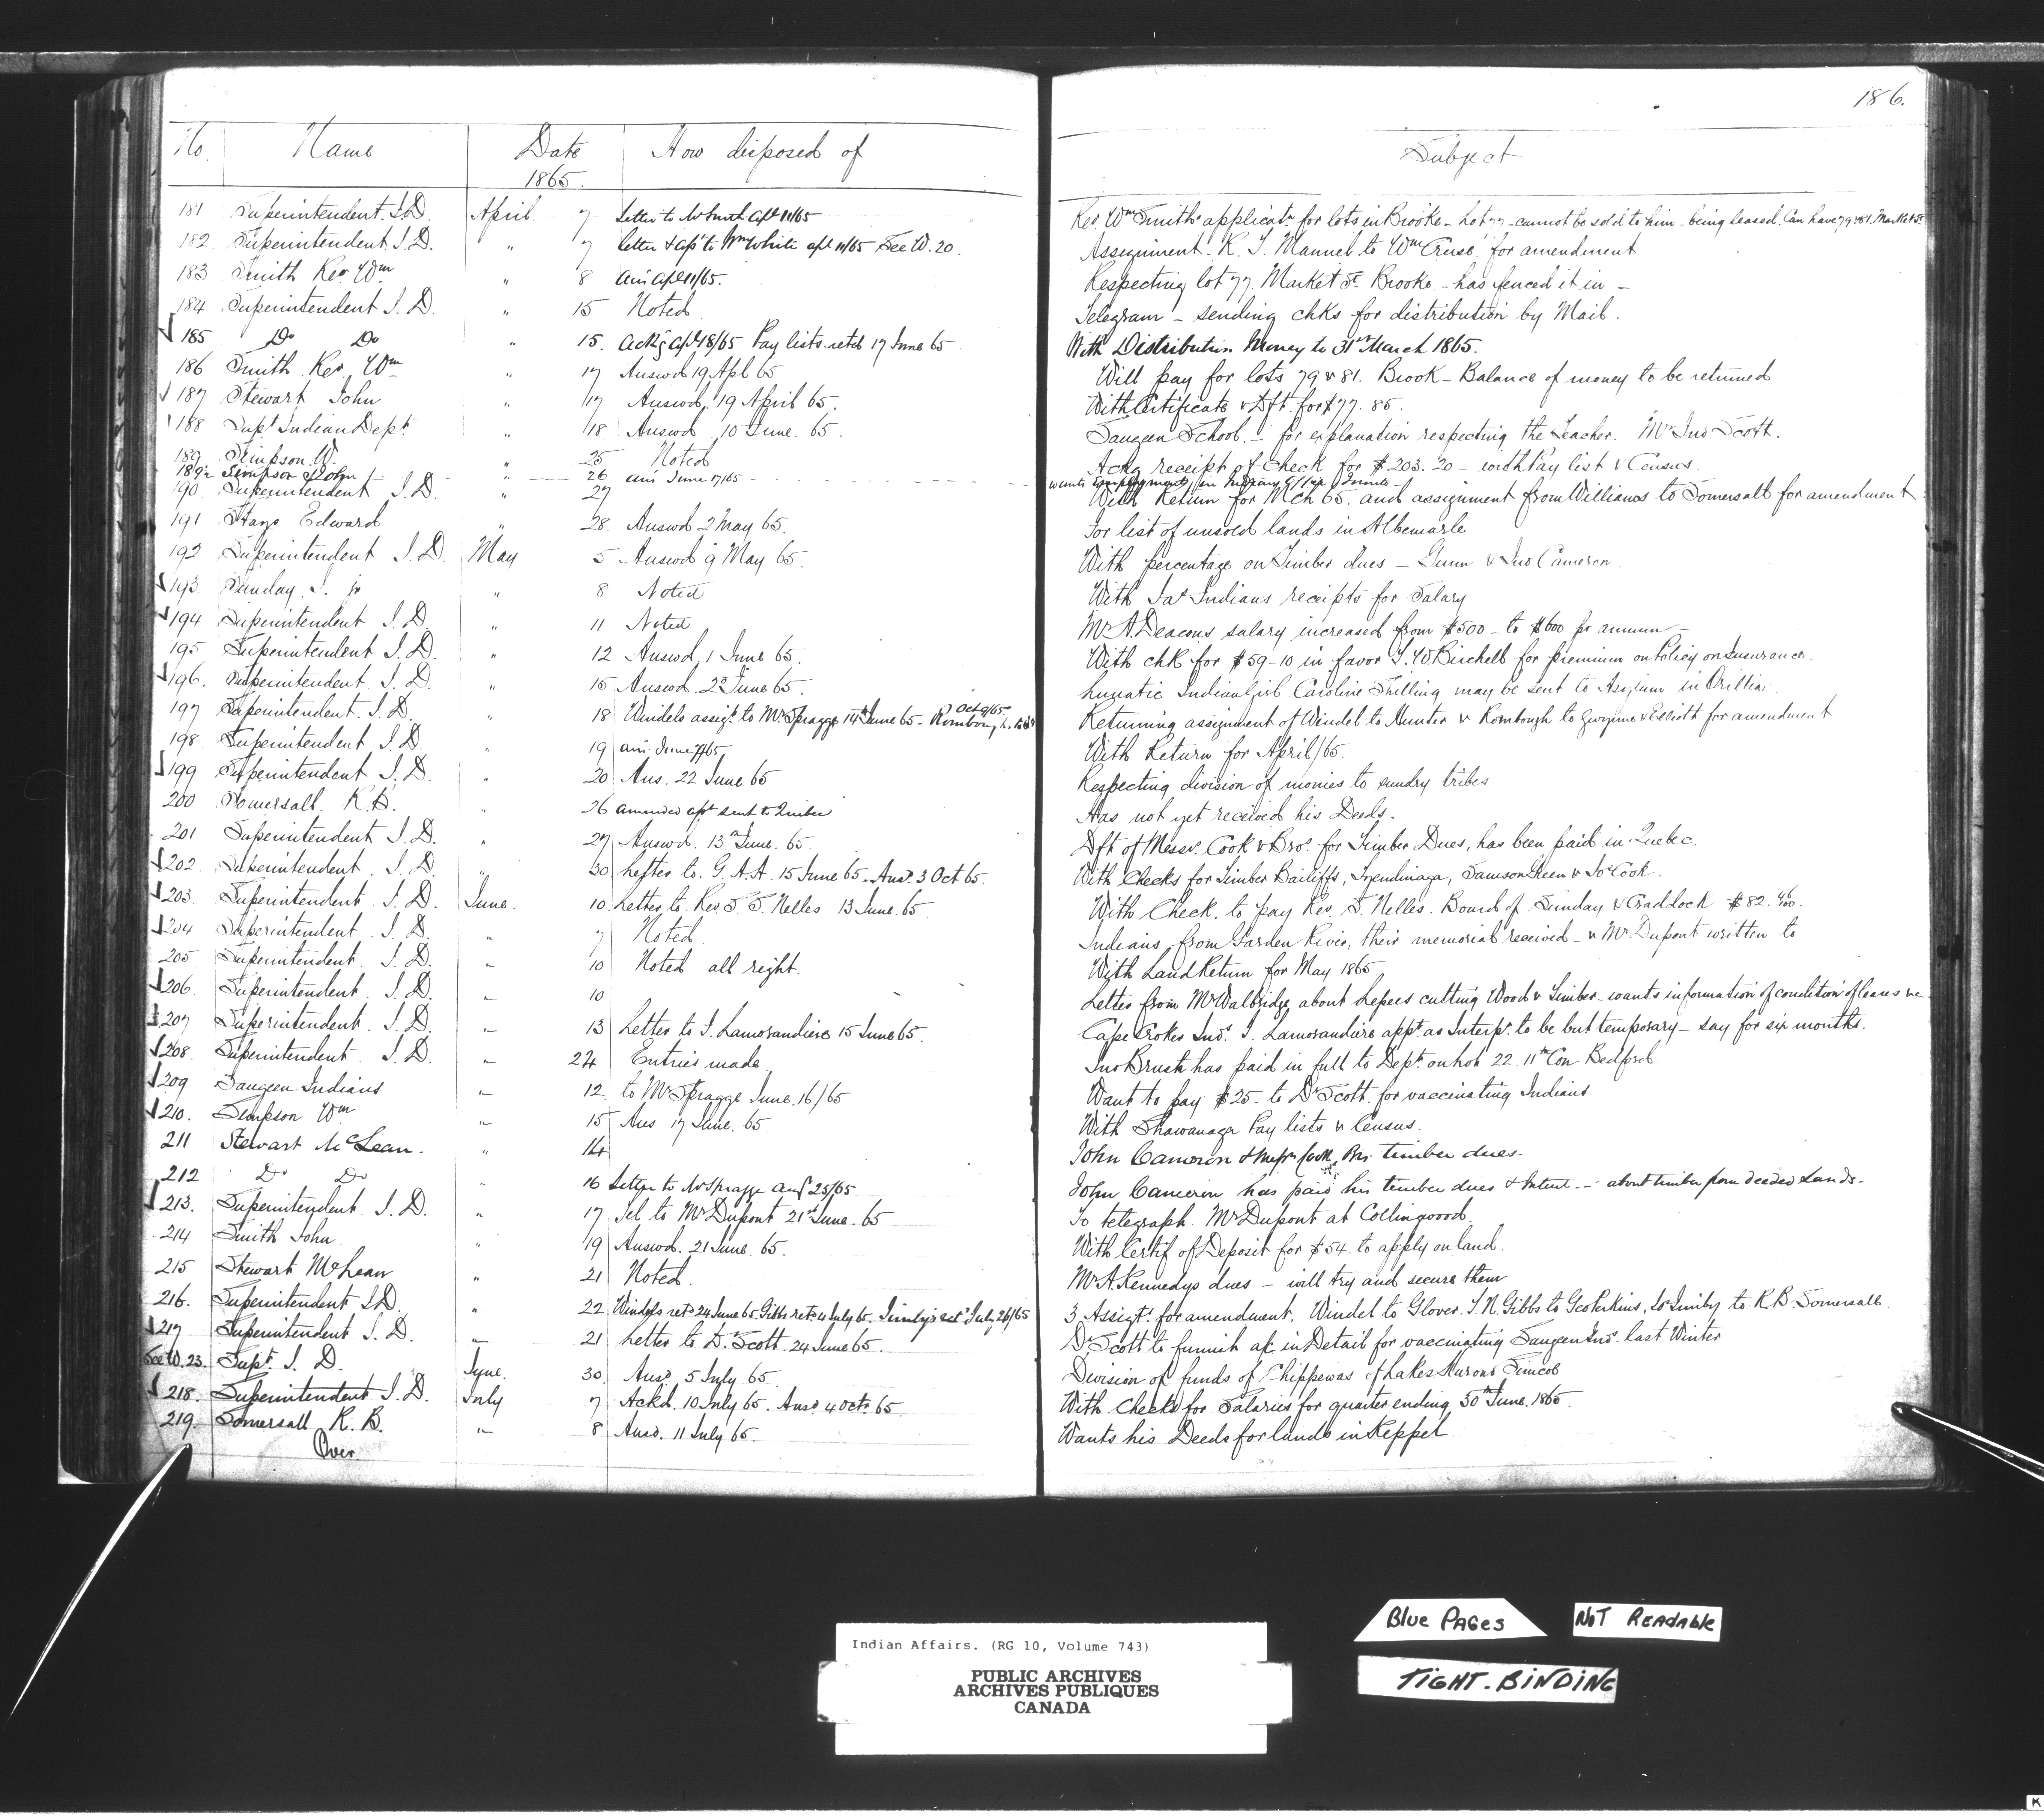 186.
No. Name Date 1865. How disposed of Subject
181 Superintendent I.D. April 7 Letter to Mr Smith Apl 11/65 Rev. Wm Smith's applicatn for lots in Brooke - Lot 77 - cannot be sold to him - being leased. Can have 79 & 81. Market St.
182 Superintendent I.D. " 7 Letter & to Wm White apl 11/65 See W. 20. Assignment. R. T. Mannel to Wm Cruse, for amendment
183 Smith Rev. Wm " 8 Ans Apl 11/65. Respecting lot 77. Market St. Brooke - has fenced it in -
184 Superintendent I. D. " 15 Noted Telegram - sending chks for distribution by Mail.
185 Do Do " 15. Ackg Apl 18/65 Pay lists retd 17 June 65 With Distribution Money to 31st March 1865.
186 Smith Rev. Wm " 17 Answd 19 Apl 65 Will pay for lots 79 & 81. Brook - Balance of money to be returned
187 Stewart John " 17 Answd. 19 April 65. With Certificate & Dft. for $77.85.
188 Supt Indian Dept " 18 Answd 10 June. 65. Saugeen School. - for explanation respecting the Teacher. Mr Jno Scott.
189 Simpson W. " 25 Noted Ackg receipt of check for $203.20 - with Pay list & Census.
189½ Simpson John " 26 ans June 17/65 wants Employment in
190 Superintendent I.D. " 27 With Return for Mch 65. and assignment from Williams to Somersall for amendment
191 Hays Edward " 28 Answd 2 May 65. For list of unsold lands in Albemarle
192 Superintendent I.D. May 5 Answd 9 May 65. With percentage on Timber dues - Gunn & Jno Cameron
193. Sunday. J. jr " 8 Noted With Jas Indians receipts for Salary
194 Superintendent I.D. " 11 Noted Mr A. Deacons salary increased from $500 - to $600 pr annum -
195 Superintendent I.D. " 12 Answd, 1 June 65. With chk for $59-10 in favor T. W Birchell for premium on Policy on Insurance
196. Superintendent. I.D. " 15 Answd. 2d June 65. Lunatic Indian Girl Caroline Shilling may be sent to Asylum in Orillia
197 Superintendent. I.D. " 18 Windels assigt to Mr Spragge 14th June 65 - Oct 9/65 Returning assignment of Windel to Hunter & Rombough to Gwynne & Elliott for amendment
198 Superintendent I.D. " 19 ans June 7/65 With Return for April/65.
199 Superintendent I.D. " 20 Ans. 22 June 65 Respecting division of monies to sundry tribes
200 Somersall. R.B. " 26 amended apt sent to Has not yet received his Deeds.
201 Superintendent I.D. " 27 Answd. 13th June. 65. Dft of Messrs. Cook & Bro. for Timber Dues, has been paid in Quebec.
202. Superintendent. I.D. " 30 Letter to. G. A. A. 15 June 65 - Ansd. 3 Oct 65. With Checks for Timber Bailiffs, Tyendinaga, Samson Green & Jos Cook.
203. Superintendent. I.D. June. 10 Letter to Rev. Nelles 13 June. 65 With Check. to pay Rev. Nelles. Board of Sunday & Craddock $82.40.
204 Superintendent. I.D. " 7 Noted. Indians from Garden River, their memorial received - & Mr Dupont written to
205 Superintendent. I.D. " 10 Noted all right. With Land Return for May 1865
206. Superintendent. I.D. " 10 Letter from Mr Walbridge about Lepees cutting Wood & Timber - wants information of condition of leases &c
207 Superintendent. I.D. " 13 Letter to J. Lamorandiere 15 June 65. Cape Crokes Inds. J. Lamorandiere appt. as Interpr. to be but temporary - say for six months.
208. Superintendent. I.D. " 24 Entries made Jno Brush has paid in full to Dept. on Lot 22. 11th Con Bedford
209 Saugeen Indians " 12 to Mr Spragge June. 16/65 Want to pay $25 - to Dr Scott. for vaccinating Indians
210. Simpson Wm " 15 Ans 17 June. 65. With Shawanaga Pay lists & Census.
211 Stewart McLean. " 14 John Cameron & Cook Bro. timber dues -
212 Do Do " 16 Letter to Mr Spragge Aug 25/65 John Cameron has paid his timber dues & Interest - about timber from deeded Lands -
213. Superintendent I.D. " 17 Tel to Mr Dupont 21st June. 65 To telegraph Mr Dupont at Collingwood.
214 Smith John " 19 Answd. 21 June. 65. With Certif of Deposit for $54. to apply on land.
215 Stewart McLean " 21 Noted. Mr A. Kennedys dues - will try and secure them
216. Superintendent I.D. " 22 Windels retd 24 June 65. Gibbs retd 4 July 65. July 26/65 3 Assigts for amendment. Windel to Glover. T. N. Gibbs to Geo Perkins, to R. B. Somersall
217 Superintendent I.D. " 21 Letter to Dr Scott. 24 June 65. Dr Scott to furnish a/c in Detail for vaccinating Saugeen Inds. last Winter
See W. 23. Supt. I.D. June. 30. Ansd 5 July 65. Division of funds of Chippewas of Lakes Huron & Simcoe
218. Superintendent I.D. July 7 Ackd. 10 July 65. Ansd 4 Oct. 65. With Checks for Salaries for quarter ending 30th June 1865.
219. Somersall R. B. " 8 Ansd. 11 July 65. Wants his Deeds for lands in Keppel
Over.
Blue Pages
Not Readable
Tight-Binding
Indian Affairs. (RG 10, Volume 743)
PUBLIC ARCHIVES
ARCHIVES PUBLIQUES
CANADA